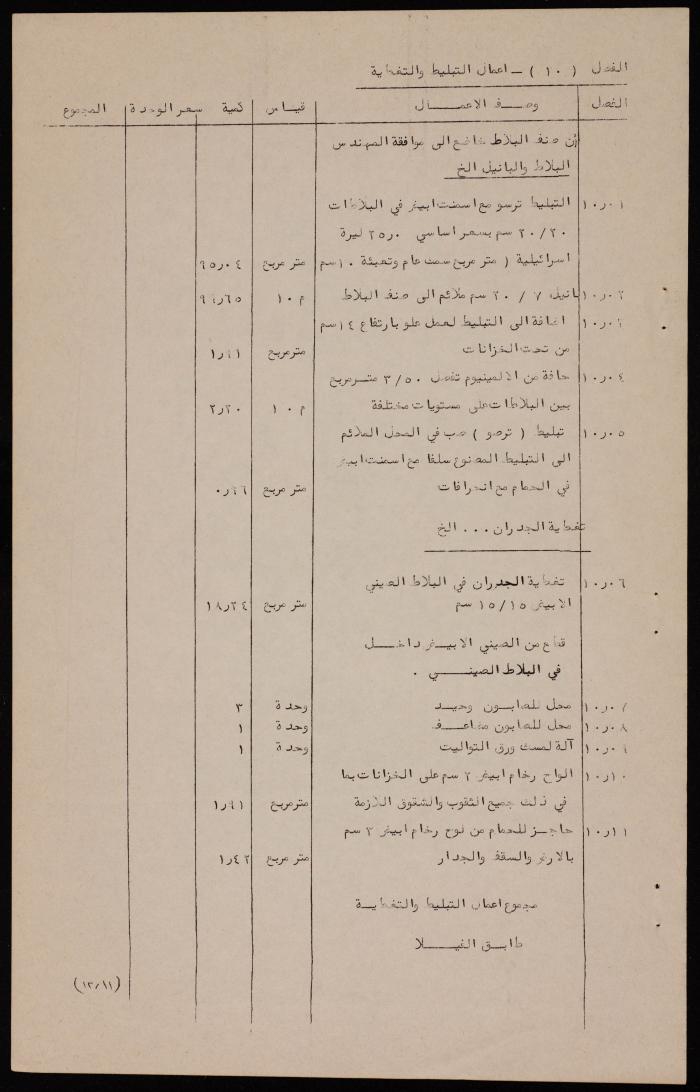 الفصل (١٠) - اعمال التبليط والتغطية
الفصل وصف الاعمال قياس كمية سعر الوحدة المجموع
ان صنف البلاط خاضع الى موافقة المهندس
البلاط والبانيل الخ
١٠ر٠١ التبليط ترسو مع اسمنت ابيض في البلاطات
٢٠/٢٠ سم بسعر اساسي ٢٥ر٠٠ ليرة
اسرائيلية ( متر مربع سمك عام وتعبئة ١٠سم متر مربع ٩٥ر٠٤
١٠ر٠٢ بانيل ٧ / ٢٠ سم ملائم الى صنف البلاط م ١٠
١٠ر٠٣ اضافة الى التبليط لعمل علو بارتفاع ١٤ سم
من تحت الخزانات متر مربع ١ر٩١
١٠ر٠٤ حافة من الالمينيوم تفصل ٣/٥٠ متر مربع
بين البلاطات على مستويات مختلفة م ١٠ ٢ر٢٠
١٠ر٠٥ تبليط ( ترصو ) صب في المحل الملائم
الى التبليط المصنوع سلفا مع اسمنت ابيض
في الحمام مع انحرافات متر مربع
تغطية الجدران ... الخ
١٠ر٠٦ تغطية الجدران في البلاط الصيني
الابيض ١٥/١٥ سم متر مربع ١٨ر٢٤
قطع من الصيني الابيض داخل
في البلاط الصيني .
١٠ر٠٧ محل للصابون وحيد وحدة ٣
١٠ر٠٨ محل للصابون مضاعف وحدة ١
١٠ر٠٩ آلة لمسك ورق التواليت وحدة ١
١٠ر١٠ الواح رخام ابيض ٢ سم على الخزانات بما
في ذلك جميع الثقوب والشقوق اللازمة متر مربع ١ر٩١
١٠ر١١ حاجز للحمام من لوح رخام ابيض ٣ سم
بالارض والسقف والجدار متر مربع ١ر٤٢
مجموع اعمال التبليط والتغطية
طابق الفيلا
(١٢/١١)